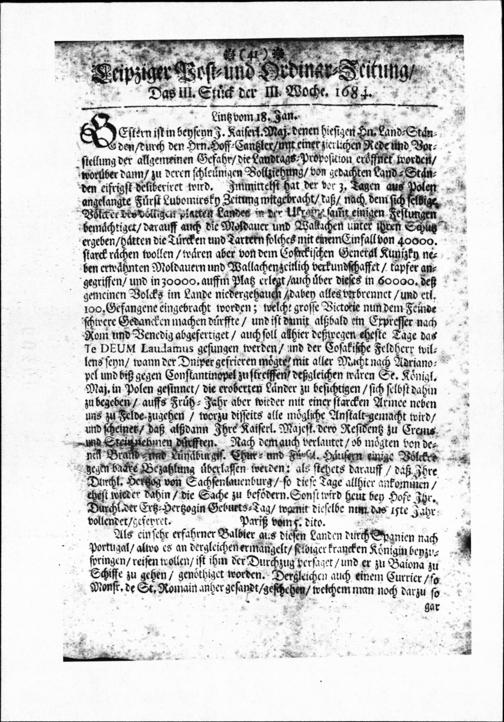 (41)
Leipziger Post- und Ordinar-Zeitung/
Das III. Stück der III. Woche. 1684.
Lintz vom 18. Jan.
GEstern ist in beyseyn J. Kaiserl. Maj. denen hiesigen Hn. Land-Stän-
den/ durch den Hrn. Hoff-Cantzler/ mit einer zierlichen Rede und Vor-
stellung der allgemeinen Gefahr/ die Landtags-Proposition eröffnet worden/
worüber dann/ zu deren schleunigen Vollziehung/ von gedachten Land-Stän-
den eifrigst deliberiret wird. Immittelst hat der vor 3. Tagen aus Polen
angelangte Fürst Lubomirsky Zeitung mitgebracht/ daß/ nach dem sich selbige
Völcker des völligen platten Landes in der Ukraine samt einigen Festungen
bemächtiget/ darauff auch die Moldauer und Wallachen unter ihren Schutz
ergeben/ hätten die Türcken und Tartern solches mit einem Einfall von 40000.
starck rächen wollen/ wären aber von dem Cosackischen General Kunitzky ne-
ben erwähnten Moldauern und Wallachen zeitlich verkundschaffet/ tapfer an-
gegriffen/ und in 30000. auffn Platz erlegt/ auch über dieses in 60000. deß
gemeinen Volcks im Lande niedergehauen/ dabey alles verbrennet/ und etl.
100. Gefangene eingebracht worden; welche grosse Victorie nun dem Feinde
schwere Gedancken machen dürffte/ und ist damit alsbald ein Expresser nach
Rom und Venedig abgefertiget/ auch soll allhier deßwegen eheste Tage das
Te DEUM Laudamus gesungen werden/ und der Cosakische Feldherr wil-
lens seyn/ wann der Dniper gefrieren mögte/ mit aller Macht nach Adriano-
pel und biß gegen Constantinopel zu streiffen/ deßgleichen wären Se. Königl.
Maj. in Polen gesinnet/ die eroberten Länder zu besichtigen/ sich selbst dahin
zu begeben/ auffs Früh-Jahr aber wieder mit einer starcken Armee neben
uns zu Felde zugehen/ worzu disseits alle mögliche Anstalt gemacht wird/
und scheinet/ daß alsdann Ihre Kaiserl. Majest. dero Residentz zu Crems
und Stein nehmen dürfften. Nach dem auch verlautet/ ob mögten von de-
nen Brand- und Lünäburgis. Chur- und Fürstl. Häusern einige Völcker
gegen baare Bezahlung überlassen werden; als stehets darauff/ daß Ihre
Durchl. Hertzog von Sachsenlauenburg/ so diese Tage allhier ankommen/
ehest wieder dahin/ die Sache zu befödern. Sonst wird heut bey Hofe Ihr.
Durchl. der Ertz-Hertzogin Geburts-Tag/ womit dieselbe nun das 15te Jahr
vollendet/ gefeyret.
Pariß vom 5. dito.
Als ein sehr erfahrner Balbier aus diesen Landen durch Spanien nach
Portugal/ alwo es an dergleichen ermangelt/ selbiger krancken Königin beyzu-
springen/ reisen wollen/ ist ihm der Durchzug versaget/ und er zu Baiona zu
Schiffe zu gehen/ genöthiget worden. Dergleichen auch einem Currier/ so
Monsr. de St. Romain anher gesandt/ geschehen/ welchem man noch darzu so
gar